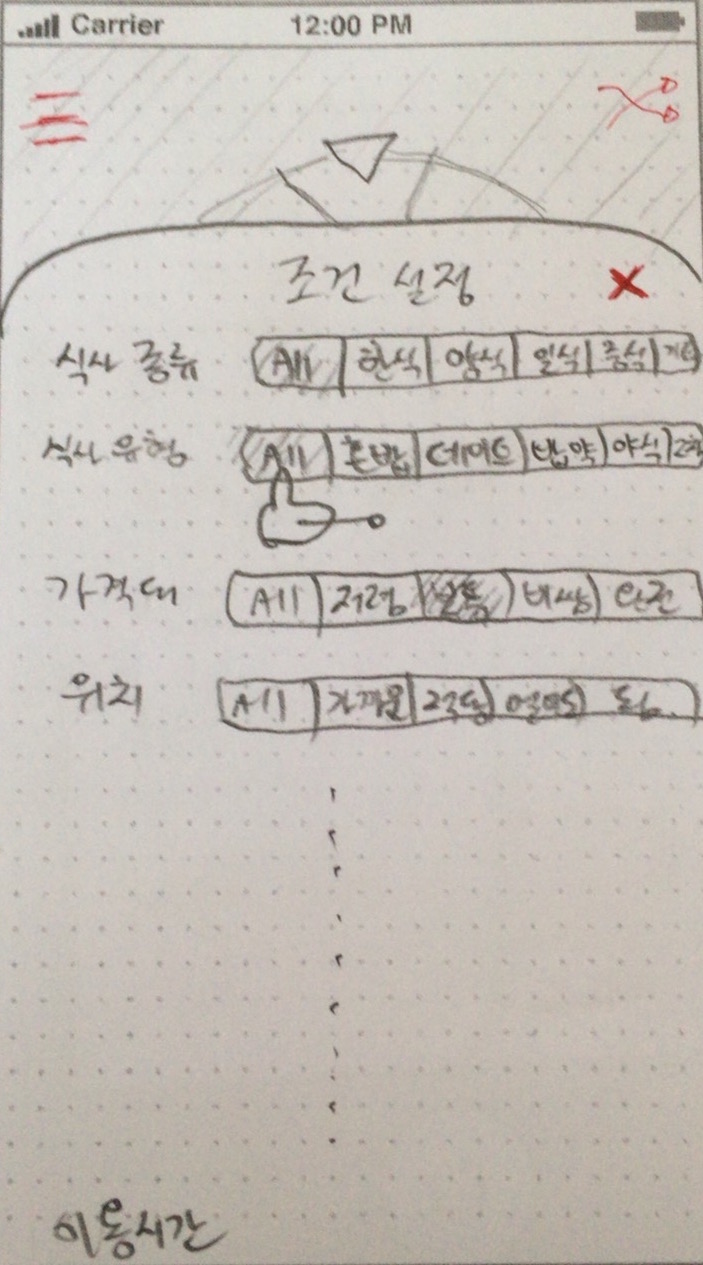 Carrier 12:00 PM
조건 설정 X
식사 종류 All 한식 양식 일식 중식
식사 유형 All 혼밥 데이트 밥약 야식
가격대 All 저렴 보통 비쌈
위치 All 가까움
이용시간